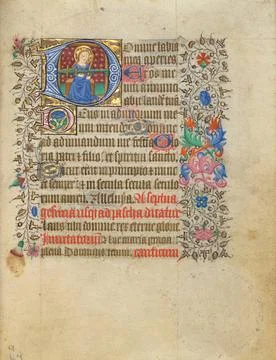 Domine labia
mea aperies
Et os me
um annunci
abit laudē tuā
Deus in adiutori
um meum intende Domine
ad adiuuandum me festina Glo
ria patri et filio et spiritui sancto
Sicut erat in principio et nunc
et semper et in secula seculo
rum amen. Alleluya. A septua
gesima usqz ad pascha dicatur
Laus tibi domine rex eterne glorie.
Inuitatorium Aue maria gracia
plena. Dominus tecum.